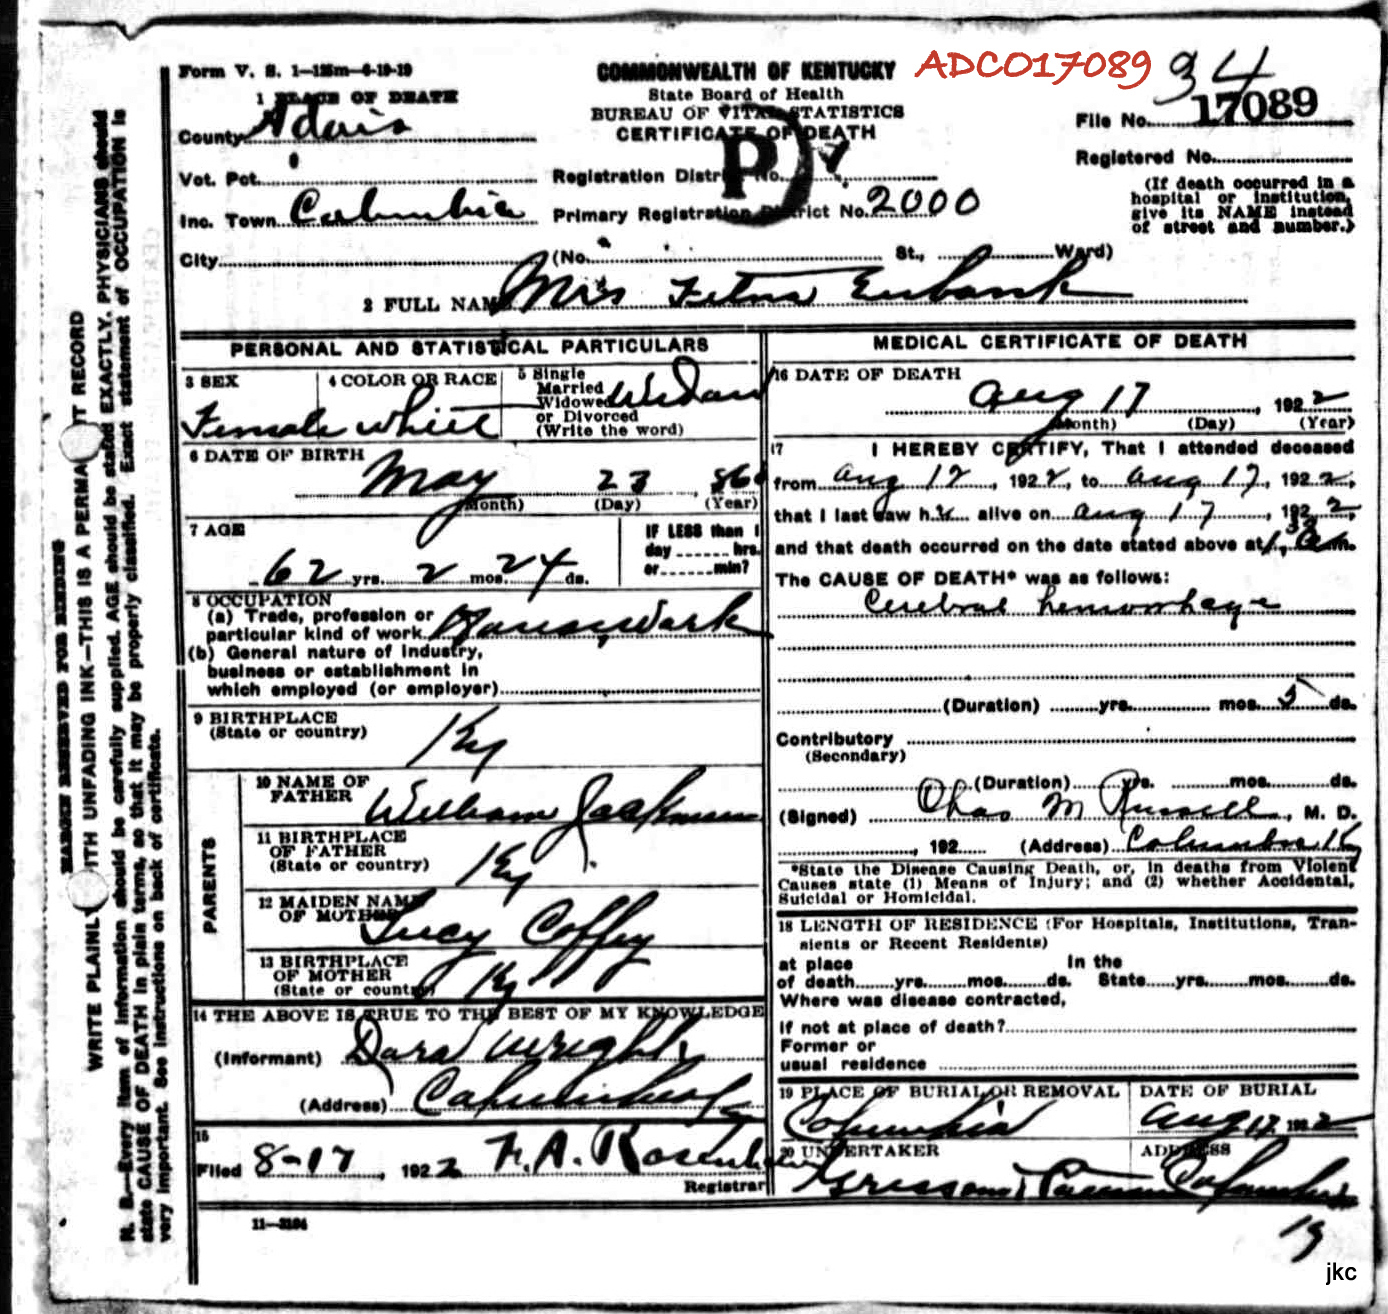 ADCO17089
34
Form V. S. 1—125m—6-19-19
COMMONWEALTH OF KENTUCKY
State Board of Health
BUREAU OF VITAL STATISTICS
CERTIFICATE OF DEATH
File No. 17089
Registered No.
(If death occurred in a hospital or institution, give its NAME instead of street and number.)
1 PLACE OF DEATH
County Adair
Vot. Pct.
Registration District No.
P
Inc. Town Columbia
Primary Registration District No. 2000
City (No. St., Ward)
2 FULL NAME Mrs Eubank
PERSONAL AND STATISTICAL PARTICULARS
3 SEX
Female
4 COLOR OR RACE
White
5 Single
Married
Widowed
or Divorced
(Write the word)
Widow
6 DATE OF BIRTH
May 23, 860
(Month) (Day) (Year)
7 AGE
62 yrs. 2 mos. 24 ds.
IF LESS than 1
day hrs.
or min?
8 OCCUPATION
(a) Trade, profession or
particular kind of work Housework
(b) General nature of Industry,
business or establishment in
which employed (or employer)
9 BIRTHPLACE
(State or country)
Ky
PARENTS
10 NAME OF
FATHER William Jackman
11 BIRTHPLACE
OF FATHER
(State or country) Ky
12 MAIDEN NAME
OF MOTHER Lucy Coffey
13 BIRTHPLACE
OF MOTHER
(State or country) Ky
14 THE ABOVE IS TRUE TO THE BEST OF MY KNOWLEDGE
(Informant) Dora Wright
(Address) Columbia
15
Filed 8-17, 1922 Registrar
11—3184
MEDICAL CERTIFICATE OF DEATH
16 DATE OF DEATH
Aug 17, 1922
(Month) (Day) (Year)
17 I HEREBY CERTIFY, That I attended deceased
from Aug 12, 1922, to Aug 17, 1922,
that I last saw h er alive on Aug 17, 1922,
and that death occurred on the date stated above at 1,30 a m.
The CAUSE OF DEATH* was as follows:
Cerebral hemorrhage
(Duration) yrs. mos. 5 ds.
Contributory
(Secondary)
(Duration) yrs. mos. ds.
(Signed) Chas M Russell, M. D.
, 192 (Address) Columbia Ky
*State the Disease Causing Death, or, in deaths from Violent
Causes state (1) Means of Injury; and (2) whether Accidental,
Suicidal or Homicidal.
18 LENGTH OF RESIDENCE (For Hospitals, Institutions, Tran-
sients or Recent Residents)
at place In the
of death yrs. mos. ds. State yrs. mos. ds.
Where was disease contracted,
if not at place of death?
Former or
usual residence
19 PLACE OF BURIAL OR REMOVAL
Columbia
DATE OF BURIAL
Aug 17, 1922
20 UNDERTAKER
ADDRESS
Columbia
19
jkc
MARGIN RESERVED FOR BINDING
WRITE PLAINLY WITH UNFADING INK—THIS IS A PERMANENT RECORD
N. B.—Every item of information should be carefully supplied. AGE should be stated EXACTLY. PHYSICIANS should
state CAUSE OF DEATH in plain terms, so that it may be properly classified. Exact statement of OCCUPATION is
very important. See instructions on back of certificate.